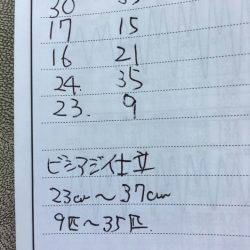 30 35
17 15
16 21
24 35
23. 9
ビシアジ仕立
23cm〜37cm
9匹〜35匹